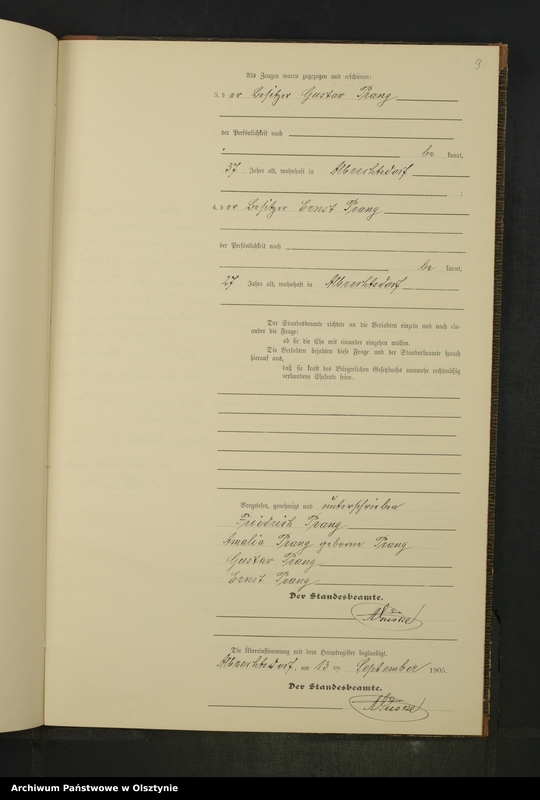 9
Als Zeugen waren zugezogen und erschienen:
3. der Besitzer Gustav Prang
der Persönlichkeit nach
be kannt,
37 Jahre alt, wohnhaft in Albrechtsdorf
;
4. der Besitzer Ernst Prang
der Persönlichkeit nach
be kannt,
27 Jahre alt, wohnhaft in Albrechtsdorf
Der Standesbeamte richtete an die Verlobten einzeln und nach ein-
ander die Frage:
ob sie die Ehe mit einander eingehen wollen.
Die Verlobten bejahten diese Frage und der Standesbeamte sprach
hierauf aus,
daß sie kraft des Bürgerlichen Gesetzbuchs nunmehr rechtmäßig
verbundene Eheleute seien.
Vorgelesen, genehmigt und unterschrieben
Friedrich Prang
Amalia Prang geborene Prang
Gustav Prang
Ernst Prang
Der Standesbeamte.
Die Übereinstimmung mit dem Hauptregister beglaubigt.
Albrechtsdorf, am 13 ten September 1905.
Der Standesbeamte.
Archiwum Państwowe w Olsztynie